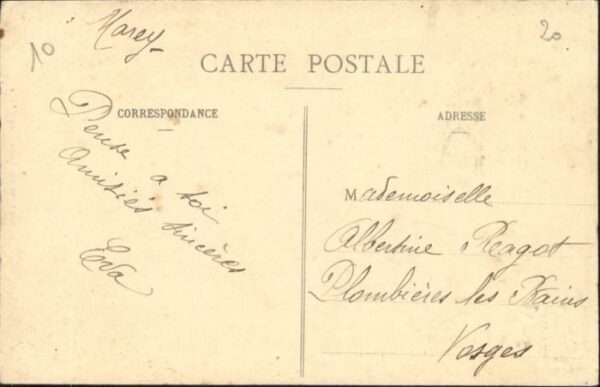 10
Marey
20
CARTE POSTALE
CORRESPONDANCE
Pense a toi
Amitiés sincères
Eva
ADRESSE
Mademoiselle
Albertine Ragot
Plombières les Bains
Vosges